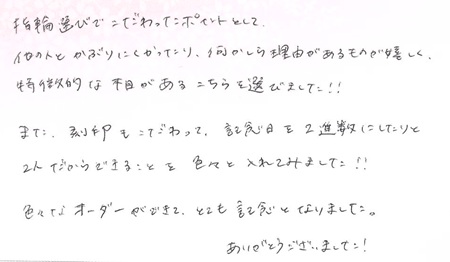 指輪選びでこだわったポイントとして、
他の人とかぶりにくかったり、何かしら理由があるものが嬉しく、
特徴的な木目があるこちらを選びました!!
また、刻印もこだわって、記念日を2進数にしたりと
2人だからできることを色々と入れてみました!!
色々なオーダーができて、とても記念となりました。
ありがとうございました!